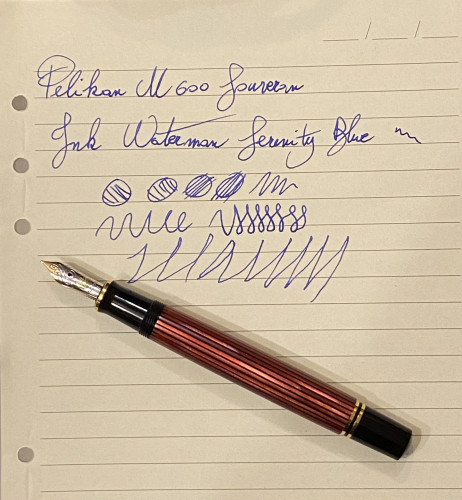 Pelikan M600 Souveran
Ink Waterman Serenity Blue